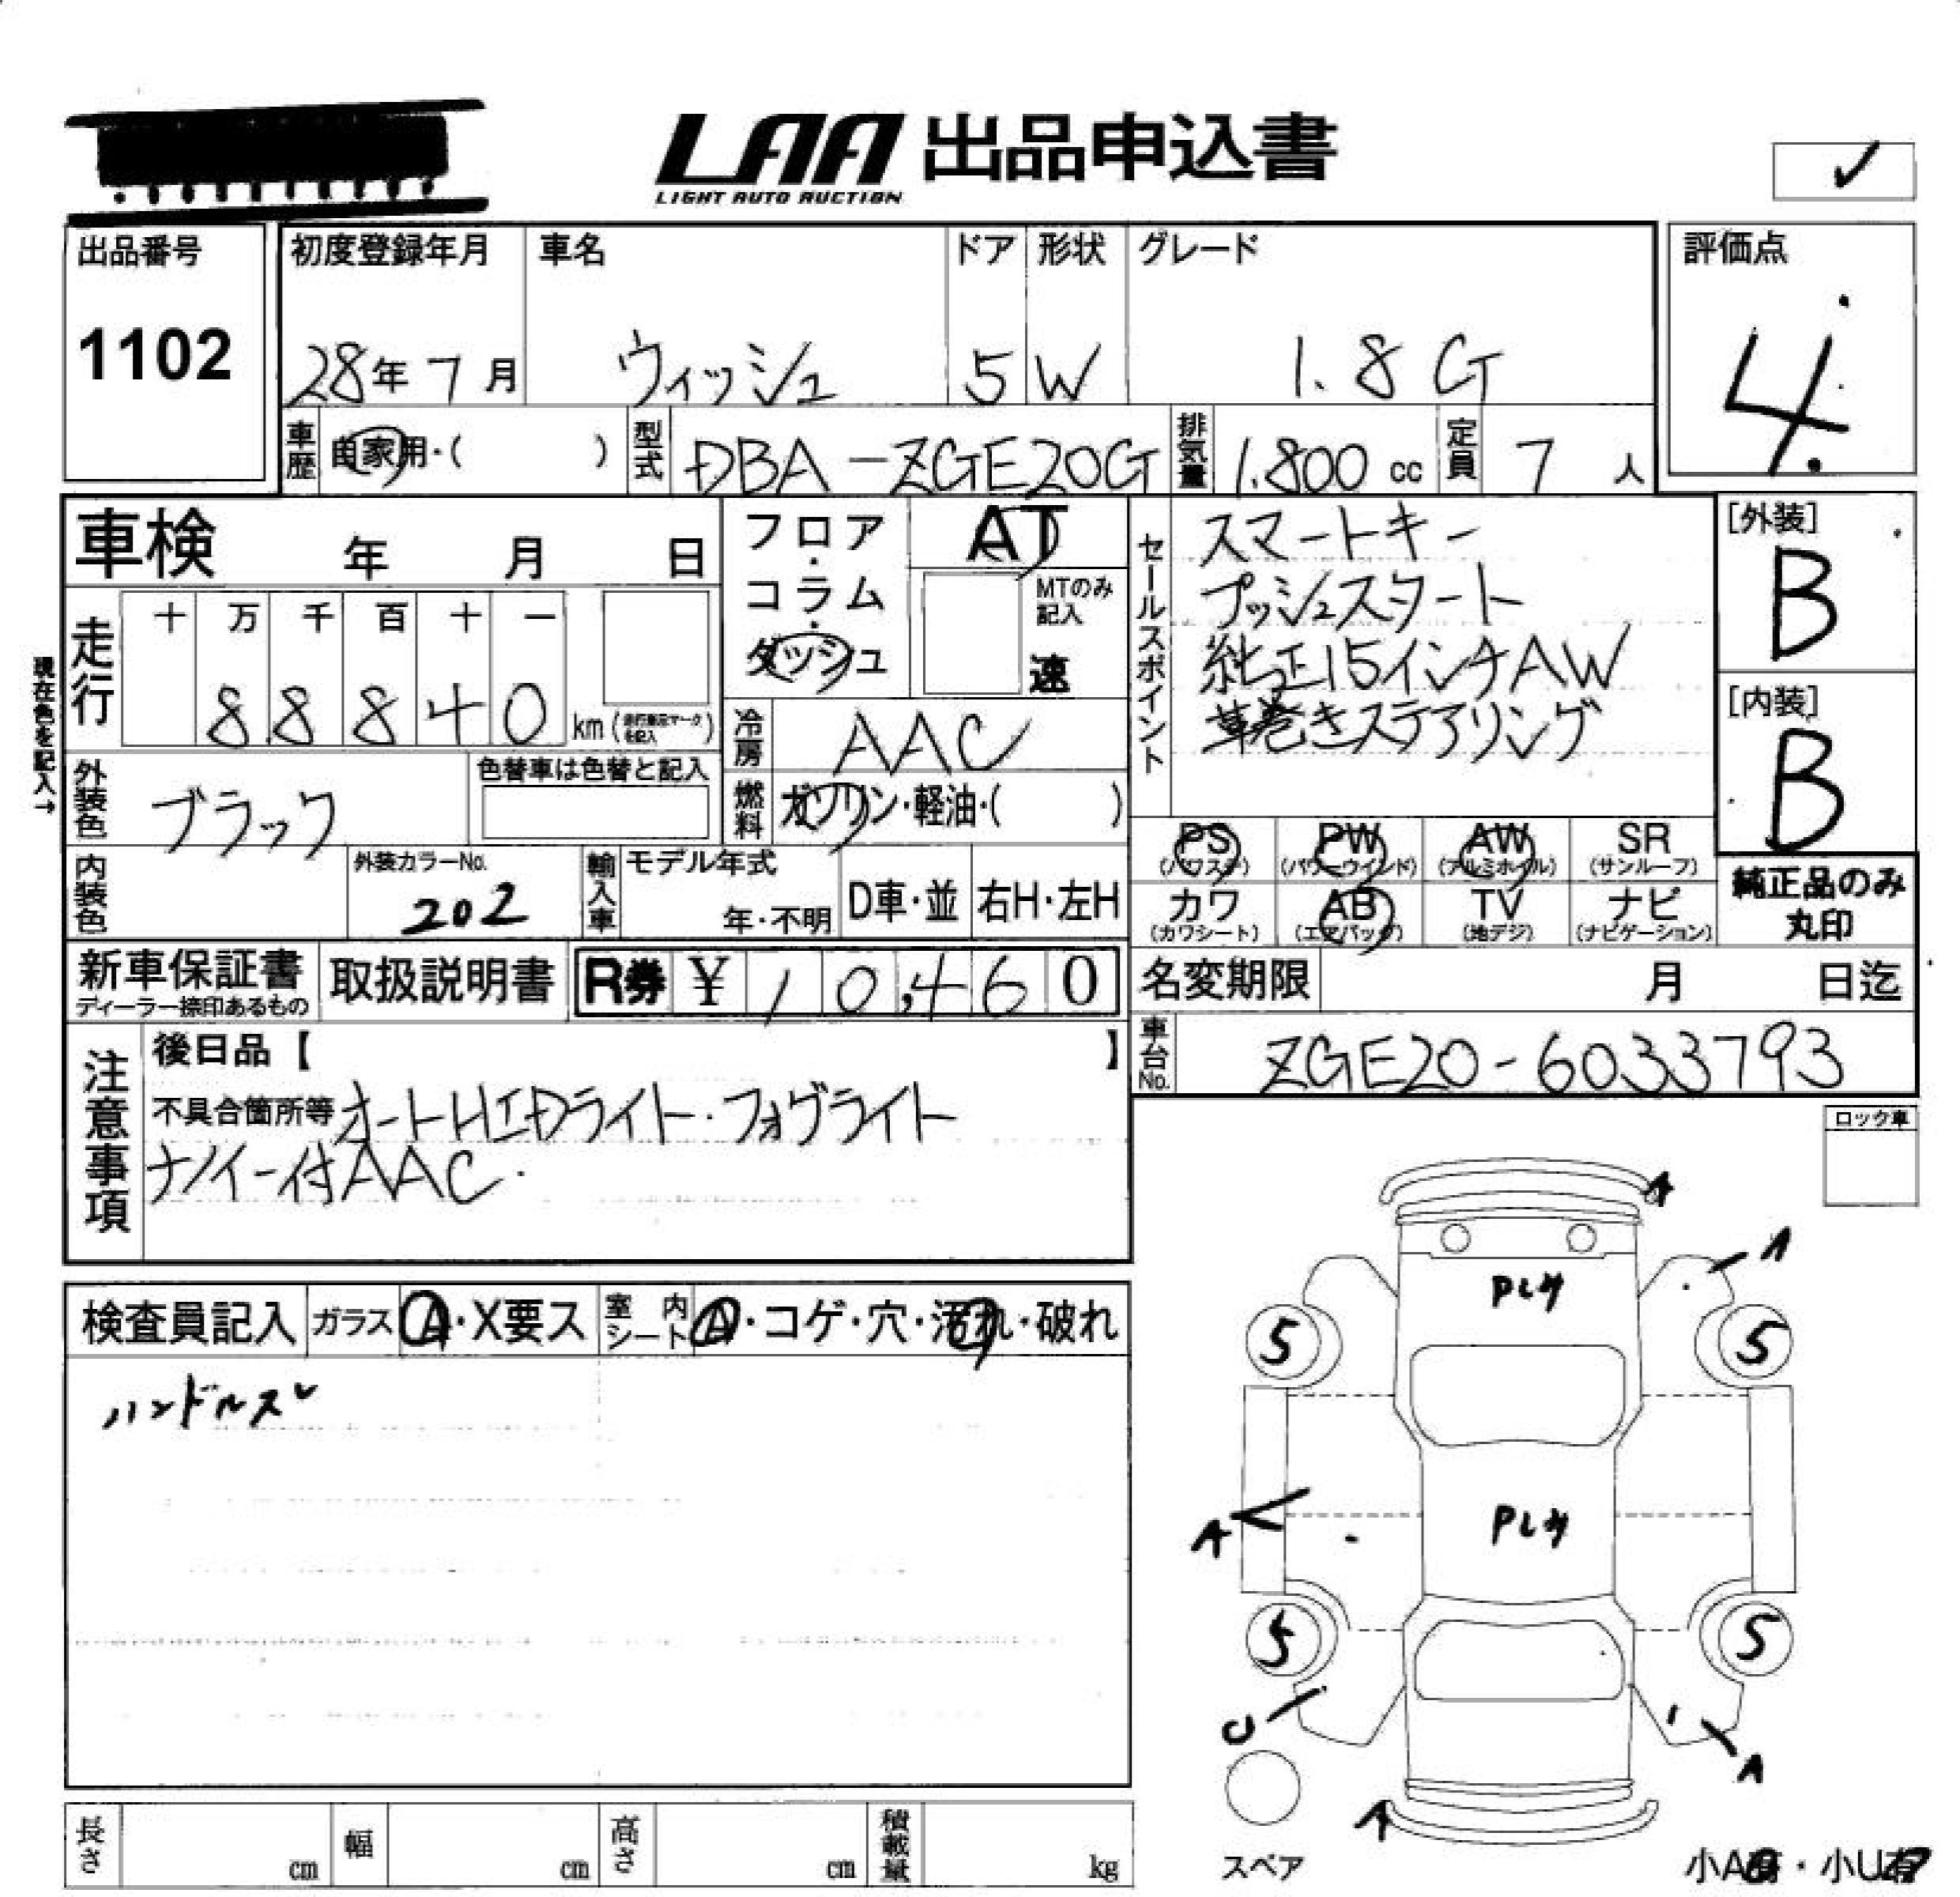 LAA 出品申込書
LIGHT AUTO AUCTION
出品番号
1102
初度登録年月
28年7月
車名
ウィッシュ
ドア
5
形状
W
グレード
1.8G
評価点
4
車歴
自家用・( )
型式
DBA-ZGE20G
排気量
1.800 cc
定員
7 人
車検 年 月 日
フロア・コラム・ダッシュ
AT
MTのみ記入
速
セールスポイント
スマートキー
プッシュスタート
純正15インチAW
革巻きステアリング
[外装]
B
[内装]
B
現在色を記入→
走行
十 万 千 百 十 一
8 8 8 4 0 km (走行表示マークを記入)
冷房
AAC
外装色
ブラック
色替車は色替と記入
燃料
ガソリン・軽油・( )
PS (パワステ) PW (パワーウインド) AW (アルミホイル) SR (サンルーフ)
カワ (カワシート) AB (エアバッグ) TV (地デジ) ナビ (ナビゲーション)
純正品のみ
丸印
内装色
外装カラーNo.
202
輸入車
モデル年式
年・不明
D車・並
右H・左H
新車保証書
ディーラー捺印あるもの
取扱説明書
R券 ¥10,460
名変期限 月 日迄
車台No.
ZGE20-6033793
注意事項
後日品【 】
不具合箇所等 オートHIDライト・フォグライト
ナノイー付AAC
ロック車
検査員記入
ガラス A・X要ス
室内シート A・コゲ・穴・汚れ・破れ
ハンドルスレ
A
A
Pレサ
5 5
A
Pレサ
5 5
U
A
A
スペア
長さ cm
幅 cm
高さ cm
積載量 kg
小A有・小U有